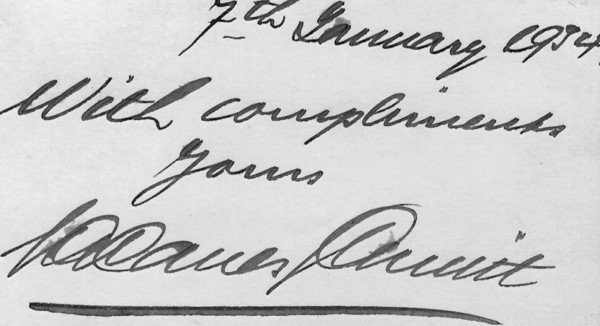 7th January 1934
With compliments
Yours